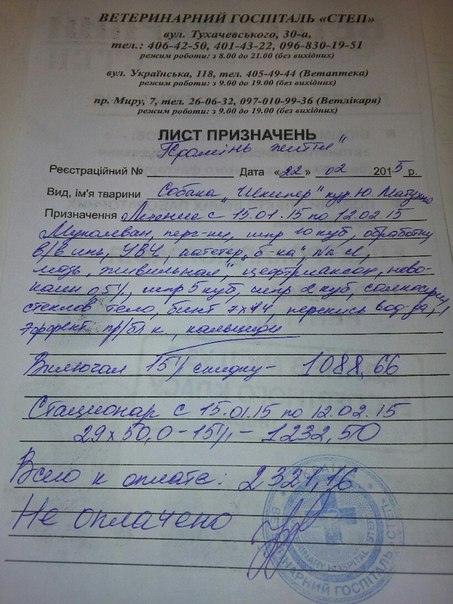 ВЕТЕРИНАРНИЙ ГОСПІТАЛЬ «СТЕП»
вул. Тухачевського, 30-а,
тел.: 406-42-50, 401-43-22, 096-830-19-51
режим роботи: з 8.00 до 21.00 (без вихідних)
вул. Українська, 118, тел. 405-49-44 (Ветаптека)
режим роботи: з 9.00 до 19.00 (без вихідних)
пр. Миру, 7, тел. 26-06-32, 097-010-99-36 (Ветлікаря)
режим роботи: з 9.00 до 19.00 (без вихідних)
ЛИСТ ПРИЗНАЧЕНЬ
"Промінь життя"
Реєстраційний № Дата «22» 02 2015 р.
Вид, ім'я тварини Собака "Шкипер" кур. Ю.
Призначення Лечение с 15.01.15 по 12.02.15
пер-ки, шпр 10 куб, обработку
в/в инъ, УВЧ, катетер, "б-ка", Na Cl,
мазь, цефтриаксон, ново-
каин 0,5%, шпр 5 куб, шпр 2 куб,
бинт 7х14, перекись вод-да,
Включая 15% скидку - 1088,66
Стационар с 15.01.15 по 12.02.15
29х50,0-15% - 1232,50
Всего к оплате: 2321,16
Не оплачено